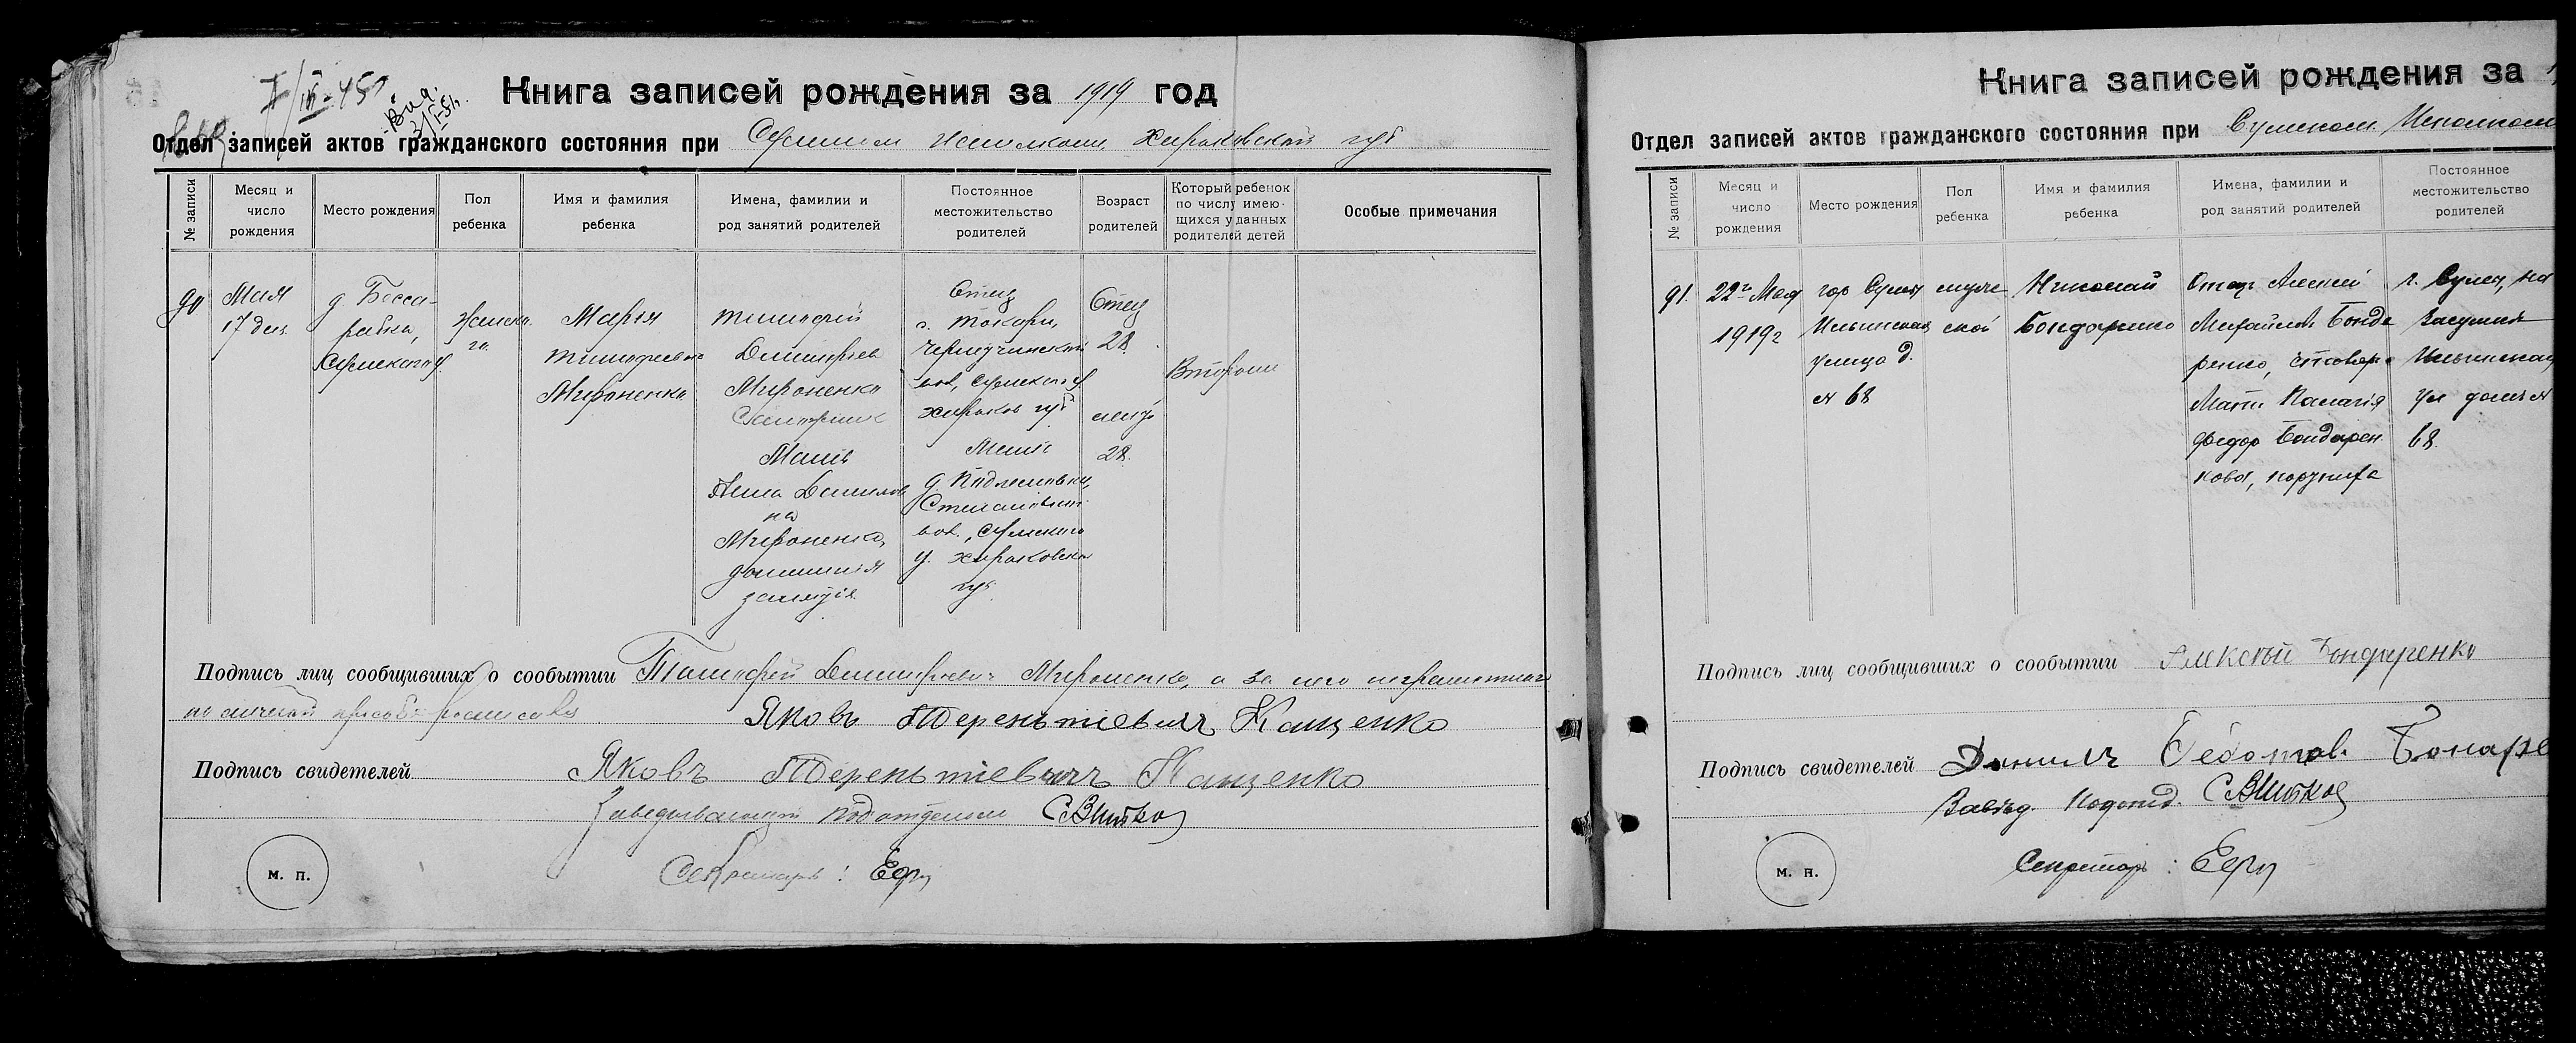 Книга записей рождения за 1919 год
Отдел записей актов гражданского состояния при Сумском исполкоме Харьковской губ
№ записи
Месяц и
число
рождения
Место рождения
Пол
ребенка
Имя и фамилия
ребенка
Имена, фамилии и
род занятий родителей
Постоянное
местожительство
родителей
Возраст
родителей
Который ребенок
по числу имею-
щихся у данных
родителей детей
Особые примечания
90
Мая
17 дня
д. Бесса-
рабка,
Сумского у.
Женска-
го.
Мария
Тимофеевна
Мироненко
Тимофей
Димитриев
Мироненко
Мать
Анна Данилов
на
Мироненко,
домашния
занятія
Отец
с. Токари,
Чернетчинской
вол, Сумского у.
Харьков губ
Мать
д. Подлесновки,
Степановской
вол., Сумского
у. Харьковской
губ.
Отец
28.
28.
Вторым
Подпись лиц сообщивших о сообытии Тимофей Димитриевич Мироненко, а за него неграмотного
по личной просьбе росписался Яковъ Терентіевичъ Кащенко
Подпись свидетелей Яковъ Терентіевичъ Кащенко
Заведывающий подотделом
Секретарь:
м. п.
Книга записей рождения за 1
Отдел записей актов гражданского состояния при Сумском Исполкоме
№ записи
Месяц и
число
рождения
Место рождения
Пол
ребенка
Имя и фамилия
ребенка
Имена, фамилии и
род занятий родителей
Постоянное
местожительство
родителей
91.
22го Мая
1919г
гор Сумы
Ильинская
улица д.
№ 68
муже
ской
Николай
Бондаренко
Отец Алексей
Михайлов Бонда
ренко, столяр
Мать Палагія
Федор Бондарен
кова,
г. Сумы, на
Засумке
Ильинская
ул дом №
68.
Подпись лиц сообщивших о сообытии Алексѣй Бондаренко
Подпись свидетелей Данилъ Федотов.
Завѣд. Подотд.
Секретарь:
м. п.